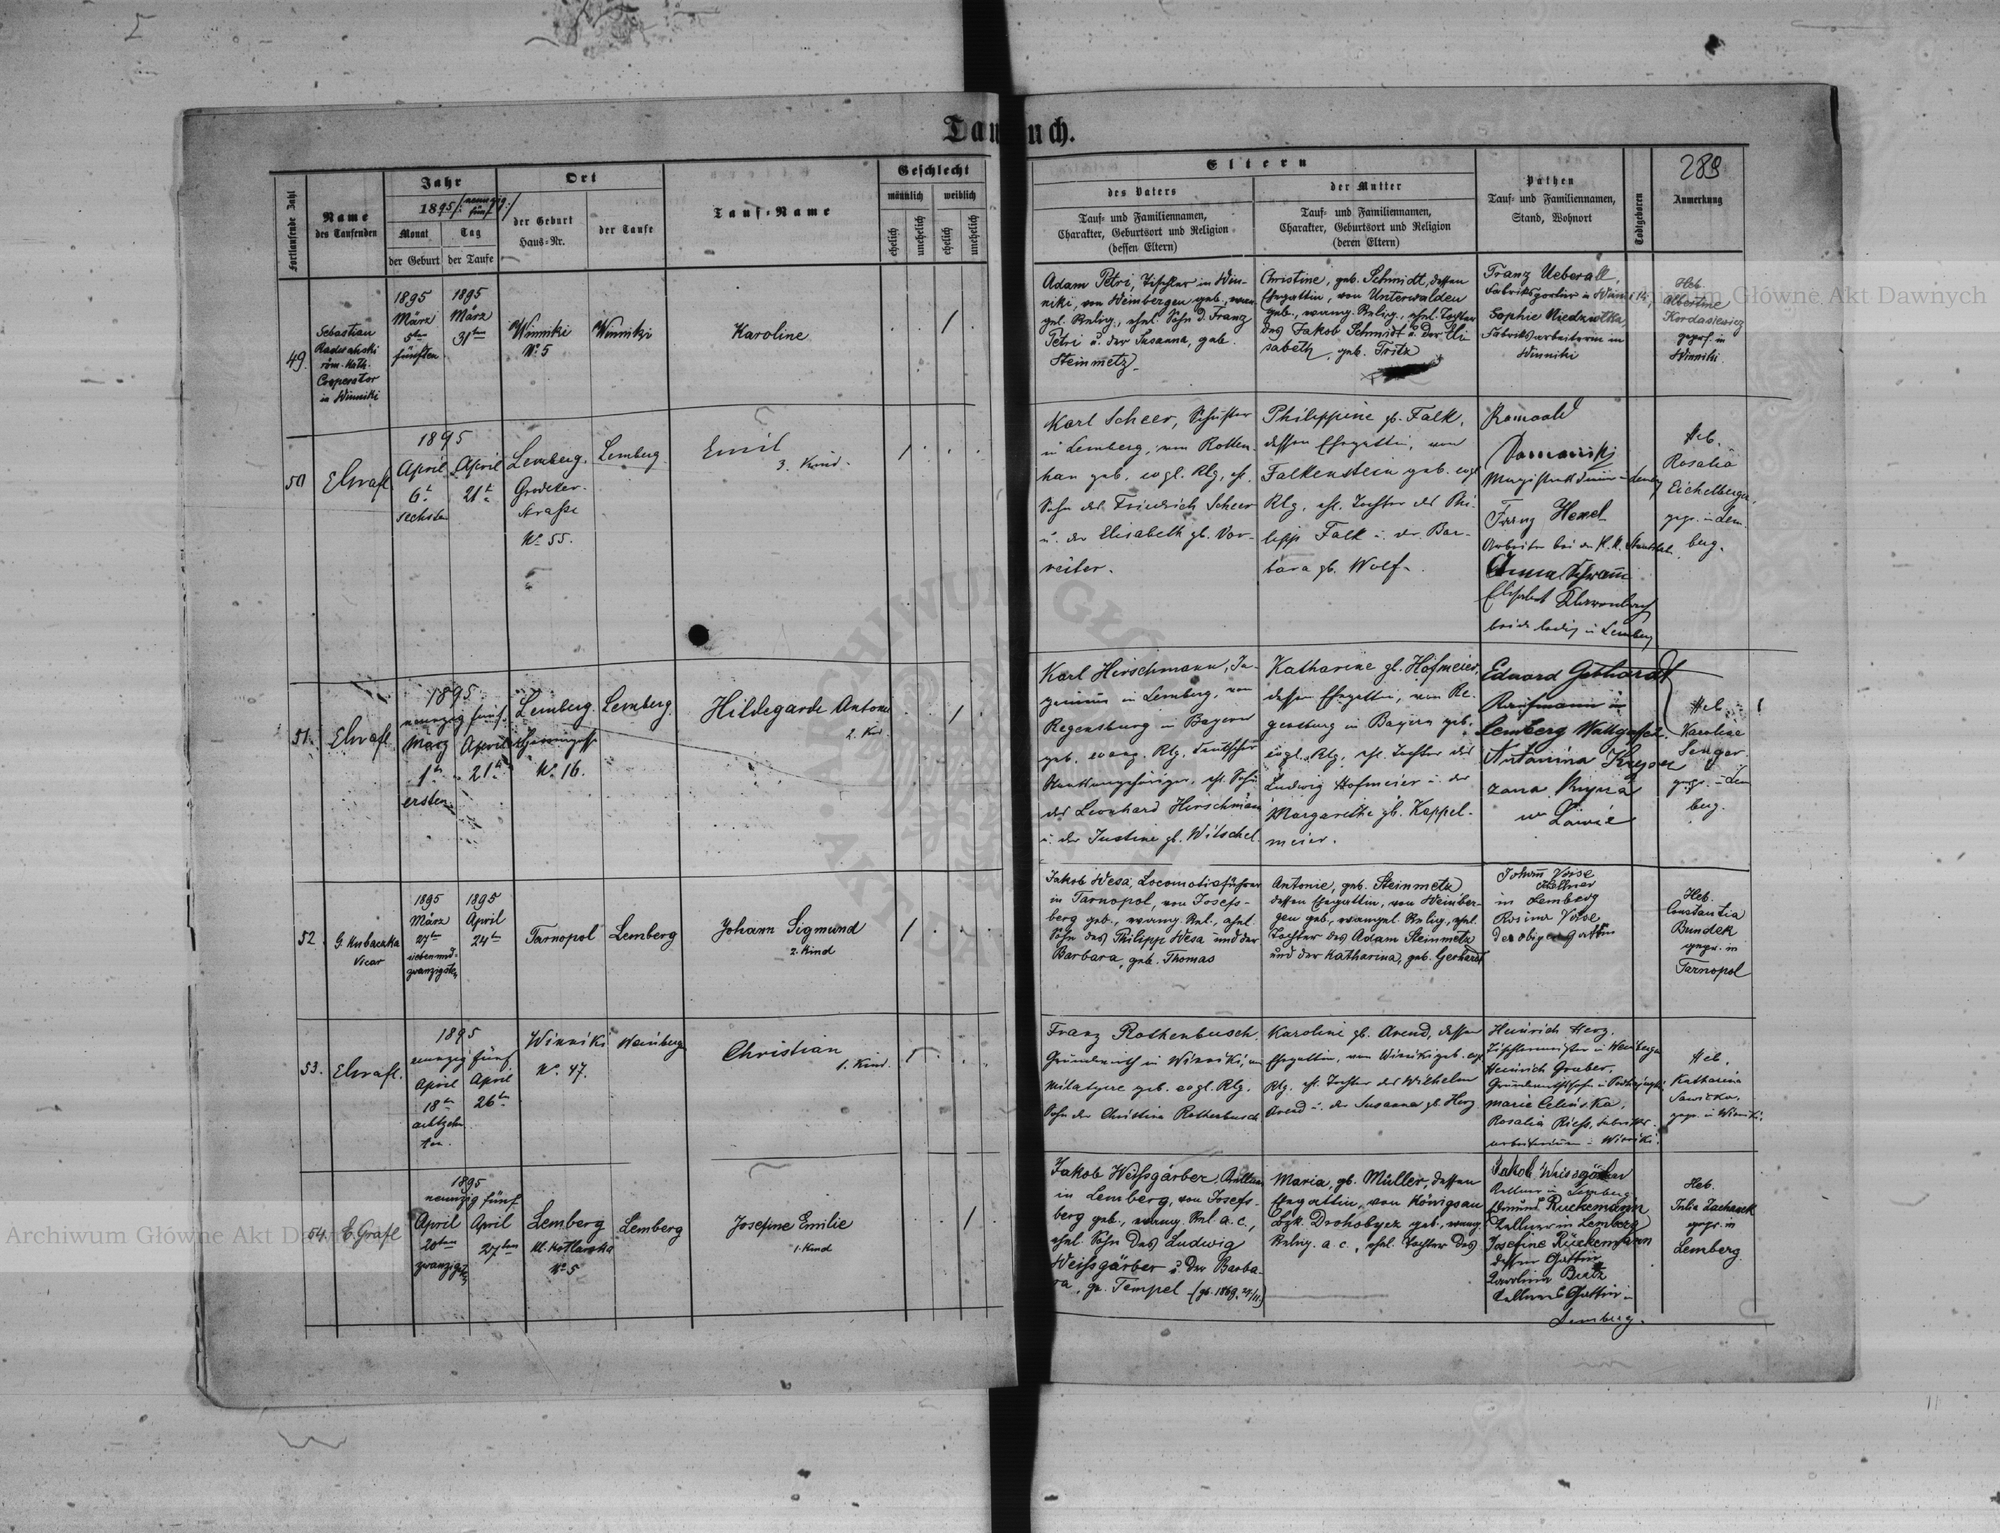 Taufbuch.
289
Fortlaufende Zahl
Name
des Taufenden
Jahr
1895
Monat
der Geburt
Tag
der Taufe
Ort
der Geburt
Haus-Nr.
der Taufe
Tauf-Name
Geschlecht
männlich
weiblich
ehelich
unehelich
ehelich
unehelich
Eltern
des Vaters
Tauf- und Familiennamen,
Charakter, Geburtsort und Religion
(dessen Eltern)
der Mutter
Tauf- und Familiennamen,
Charakter, Geburtsort und Religion
(deren Eltern)
Pathen
Tauf- und Familiennamen,
Stand, Wohnort
Todtgeboren
Anmerkung
49.
Sebastian
röm. kath.
Cooperator
in Winniki
1895
März
5ten
fünften
1895
März
31ten
Winniki
No. 5
Karoline
Adam Petri, Tischler in Win-
niki, von Weinbergen geb., evan-
gel. Relig., ehel. Sohn d. Franz
Petri u. der Susanna, geb.
Steinmetz
Christine, geb. Schmidt, dessen
Ehegattin, von Unterwalden
geb., evang. Relig., ehel. Tochter
des Jakob Schmidt u. der Eli-
sabeth, geb. Tritz
Franz Ueberall,
Sophie Niedzwitka,
Fabriksarbeiterin in
Winniki
Heb.
Albertine
Kordasiewicz
gepr. in
Winniki
50
1895
April
6t
sechsten
April
21t
Lemberg.
Grodeker-
strasse
No. 55.
Lemberg
Emil
3. Kind.
Karl Scheer,
in Lemberg, von Rotten-
han geb. evgl. Rlg, eh.
Sohn des Friedrich Scheer
u. der Elisabeth gb. Vor-
reiter.
Philippine gb. Falk,
dessen Ehegattin, von
Falkenstein geb. evgl
Rlg, ehl. Tochter des Phi-
lipp Falk u. der Bar-
bara gb. Wolf.
Romuald
Domański
Franz Hexel
beide ledig in Lemberg
Heb.
Rosalia
Eichelberger,
gepr. in Lem-
berg.
51.
1895
neunzig fünf
März
1ten
ersten
April
21t
Lemberg
No. 16.
Lemberg.
Hildegarde Antonie
2. Kind
Karl Hirschmann, In-
genieur in Lemberg, von
Regensburg in Bayern
geb. evang. Rlg. deutscher
Staatsangehöriger, ehl. Sohn
des Leonhard Hirschmann
u. der Justine gb. Witschel.
Katharine gb. Hofmeier,
dessen Ehegattin, von Re-
gensburg in Bayern geb.
evgl. Rlg. ehl. Tochter des
Ludwig Hofmeier u. der
Margarethe gb. Kappel-
meier.
Eduard Gebhardt
Kaufmann in
Lemberg Wallgasse
Antonina
we Lwowie
Heb.
Karoline
Senger
gepr. in Lem-
berg.
52.
G. Kubaczka
Vicar
1895
März
27ten
sieben und
zwanzigsten
1895
April
24ten
Tarnopol
Lemberg
Johann Sigmund
2. Kind
Jakob Wesa, Locomotivführer
in Tarnopol, von Josefs-
berg geb., evang. Rel., ehel.
Sohn des Philipp Wesa und der
Barbara, geb. Thomas
Antonie, geb. Steinmetz
dessen Ehegattin, von Weinber-
gen geb., evangel. Relig., ehel.
Tochter des Adam Steinmetz
und der Katharina, geb. Gerhardt
Kellner
in Lemberg
der obigen Gattin
Heb.
Constantia
Bundek
gepr. in
Tarnopol
53.
1895
neunzig fünf
April
18ten
achtzehn
ten.
April
26ten
Winniki
No. 47.
Weinberg
Christian
1. Kind
Franz Rothenbusch,
Grundwirth in Winniki, von
geb. evgl. Rlg.
Sohn der Christina Rothenbusch
Karoline gb. Arend, dessen
Ehegattin, von Winniki geb. evgl
Rlg. ehl. Tochter des Wilhelm
Arend u. der Susanna gb. Herz.
Heinrich Herz,
Tischlermeister in Weinbergen
Heinrich Gruber,
Marie Celińska,
Rosalia Riess, Fabriks-
arbeiterinen in Winniki
Heb.
Katharina
Sawicka,
gepr. in Winniki.
54.
E. Grafl
1895
neunzig fünf
April
20ten
zwanzigsten
April
27ten
Lemberg
kl. Kotlarska
No 5
Lemberg
Josefine Emilie
1. Kind
Jakob Weissgärber, Kellner
in Lemberg, von Josefs-
berg geb., evang. Rel. a. c.,
ehel. Sohn des Ludwig
Weissgärber u. der Barba-
ra, ge. Tempel
Maria, gb. Müller, dessen
Ehegattin, von Königsau
Bzk. Drohobycz geb., evang.
Relig. a. c., ehel. Tochter des
Jakob Weissgärber
Kellner in Lemberg
Kellner in Lemberg
Josefine Rückemann
dessen Gattin
Kellners Gattin in
Lemberg.
Heb.
Julia Zacharek
gepr. in
Lemberg
Archiwum Główne Akt Dawnych
Archiwum Główne Akt Dawnych